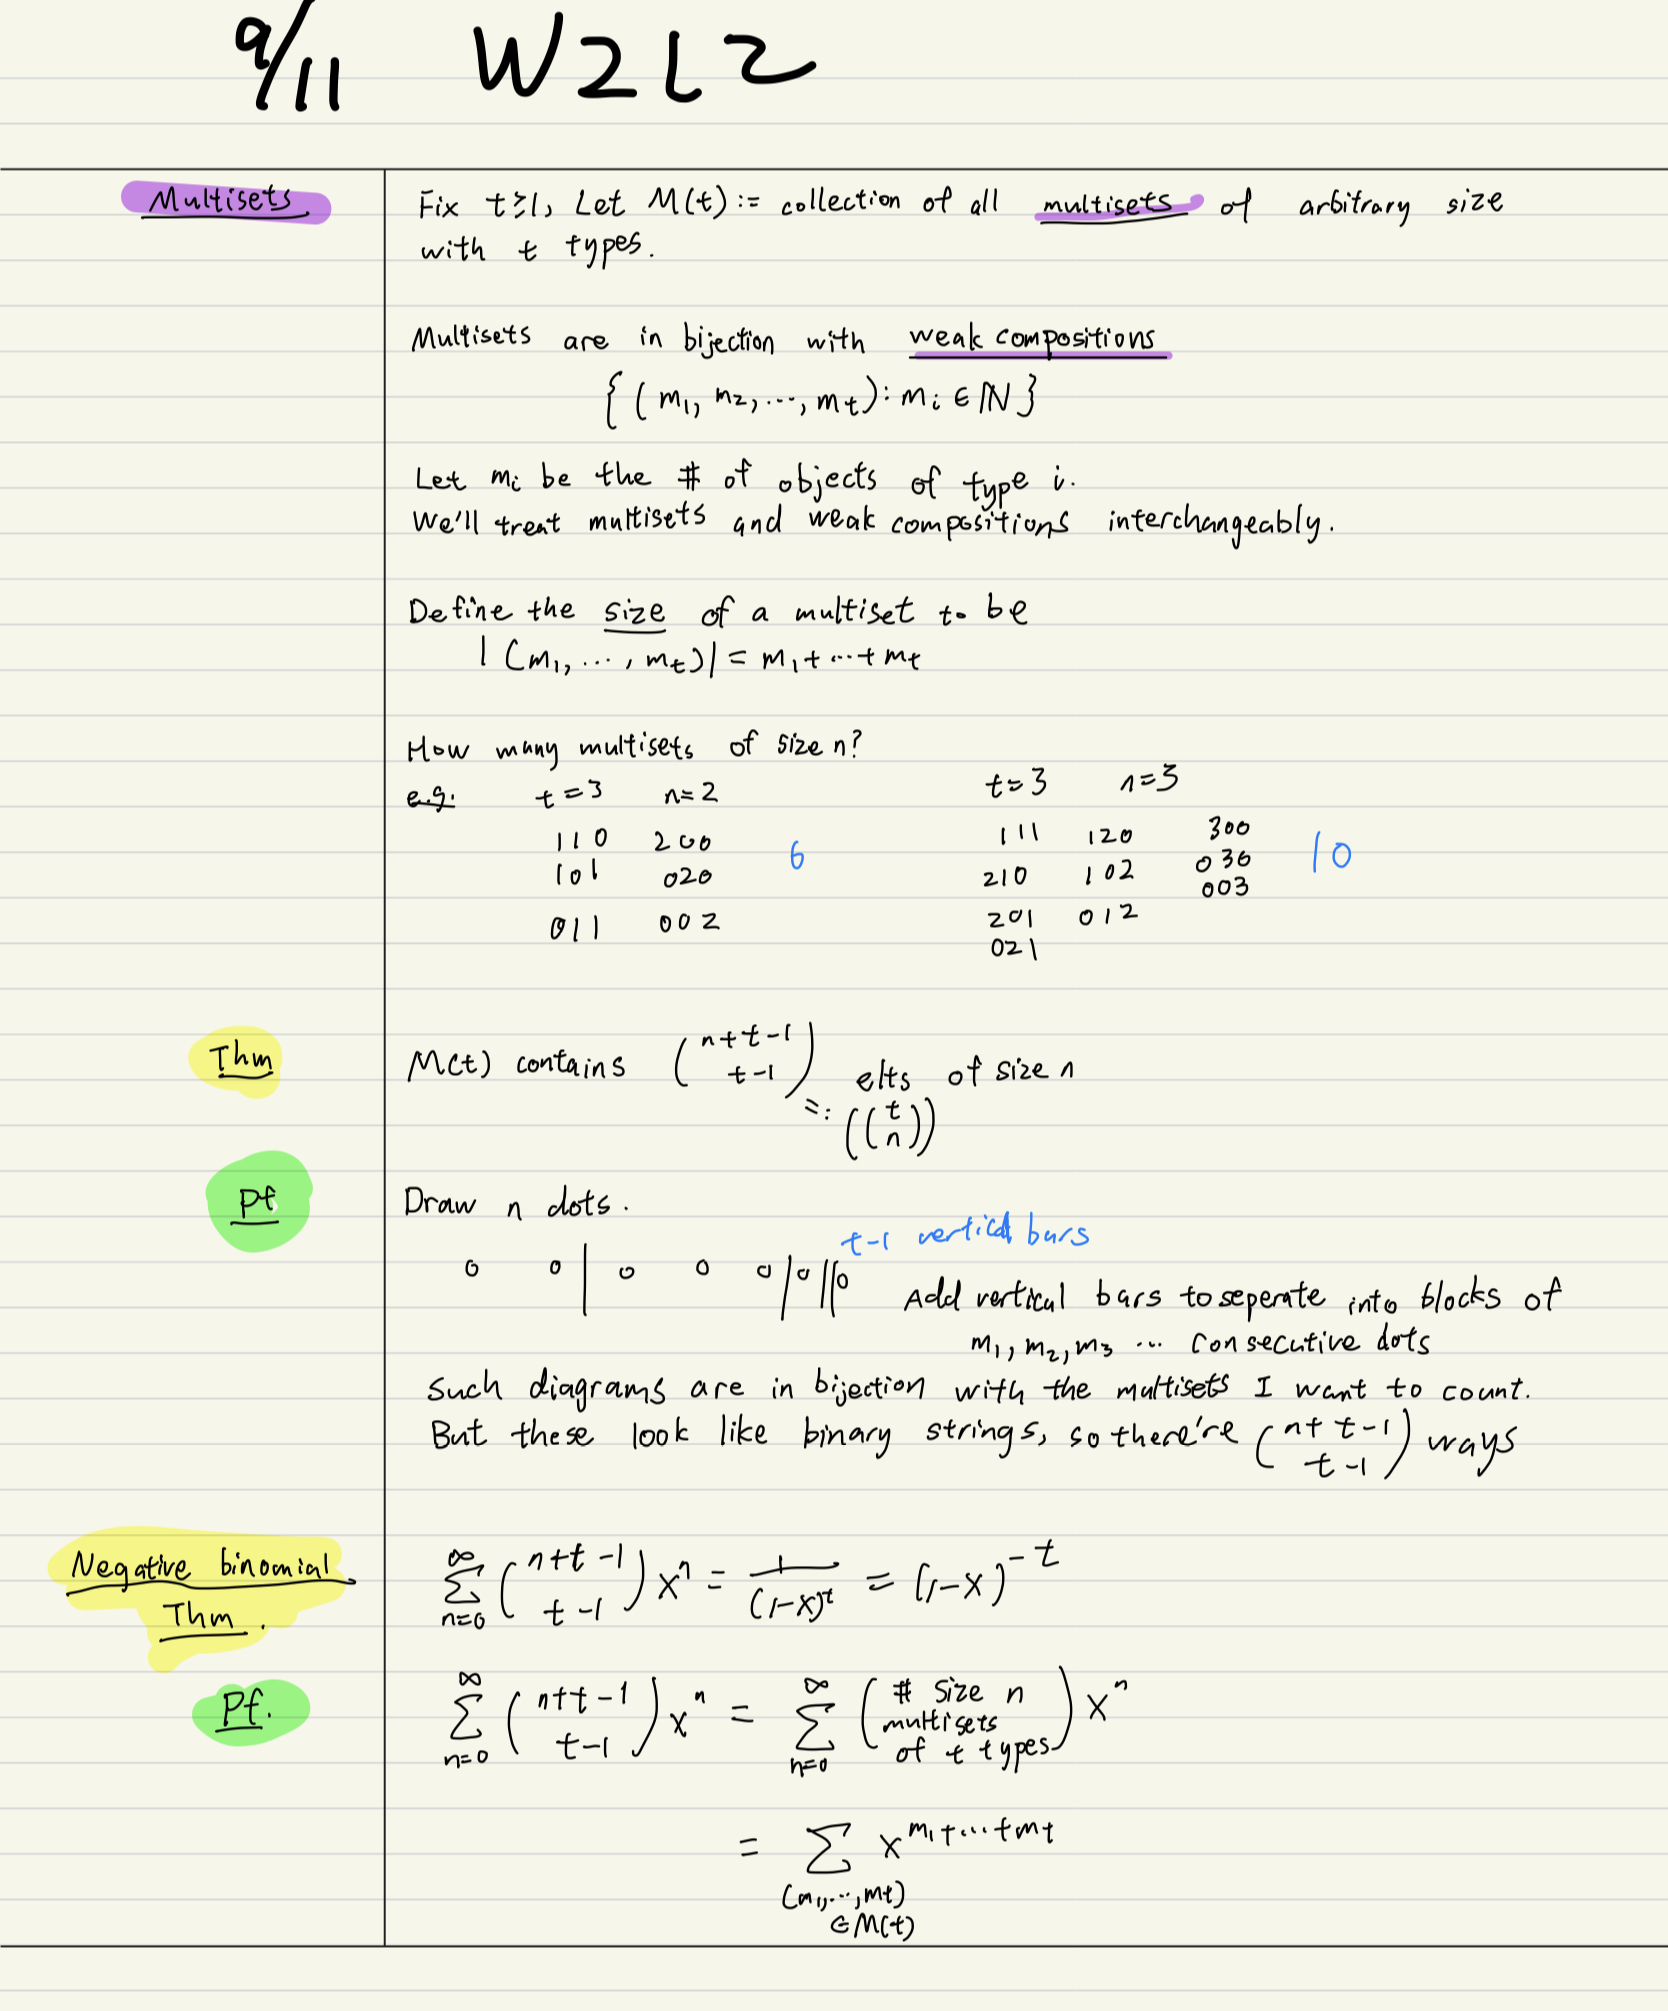 9/11 W2L2
Multisets
Fix t≥1, Let M(t) := collection of all multisets of arbitrary size
with t types.
Multisets are in bijection with weak compositions
{ (m₁, m₂, ..., mₜ) : mᵢ ∈ ℕ }
Let mᵢ be the # of objects of type i.
We'll treat multisets and weak compositions interchangeably.
Define the size of a multiset to be
|(m₁, ..., mₜ)| = m₁ + ... + mₜ
How many multisets of size n?
e.g. t=3 n=2
110 200
101 020 6
011 002
t=3 n=3
111 120 300
210 102 030 10
003
201 012
021
Thm
M(t) contains (n+t-1 choose t-1) elts of size n
=: ((t choose n))
Pf
Draw n dots.
t-1 vertical bars
o o | o o o | o || o
Add vertical bars to seperate into blocks of
m₁, m₂, m₃ ... consecutive dots
Such diagrams are in bijection with the multisets I want to count.
But these look like binary strings, so there're (n+t-1 choose t-1) ways
Negative binomial
Thm.
∑_{n=0}^{∞} (n+t-1 choose t-1) xⁿ = 1/(1-x)^t = (1-x)^{-t}
Pf.
∑_{n=0}^{∞} (n+t-1 choose t-1) xⁿ = ∑_{n=0}^{∞} (# size n multisets of t types) xⁿ
= ∑_{(m₁,...,mₜ) ∈ M(t)} x^{m₁+...+mₜ}